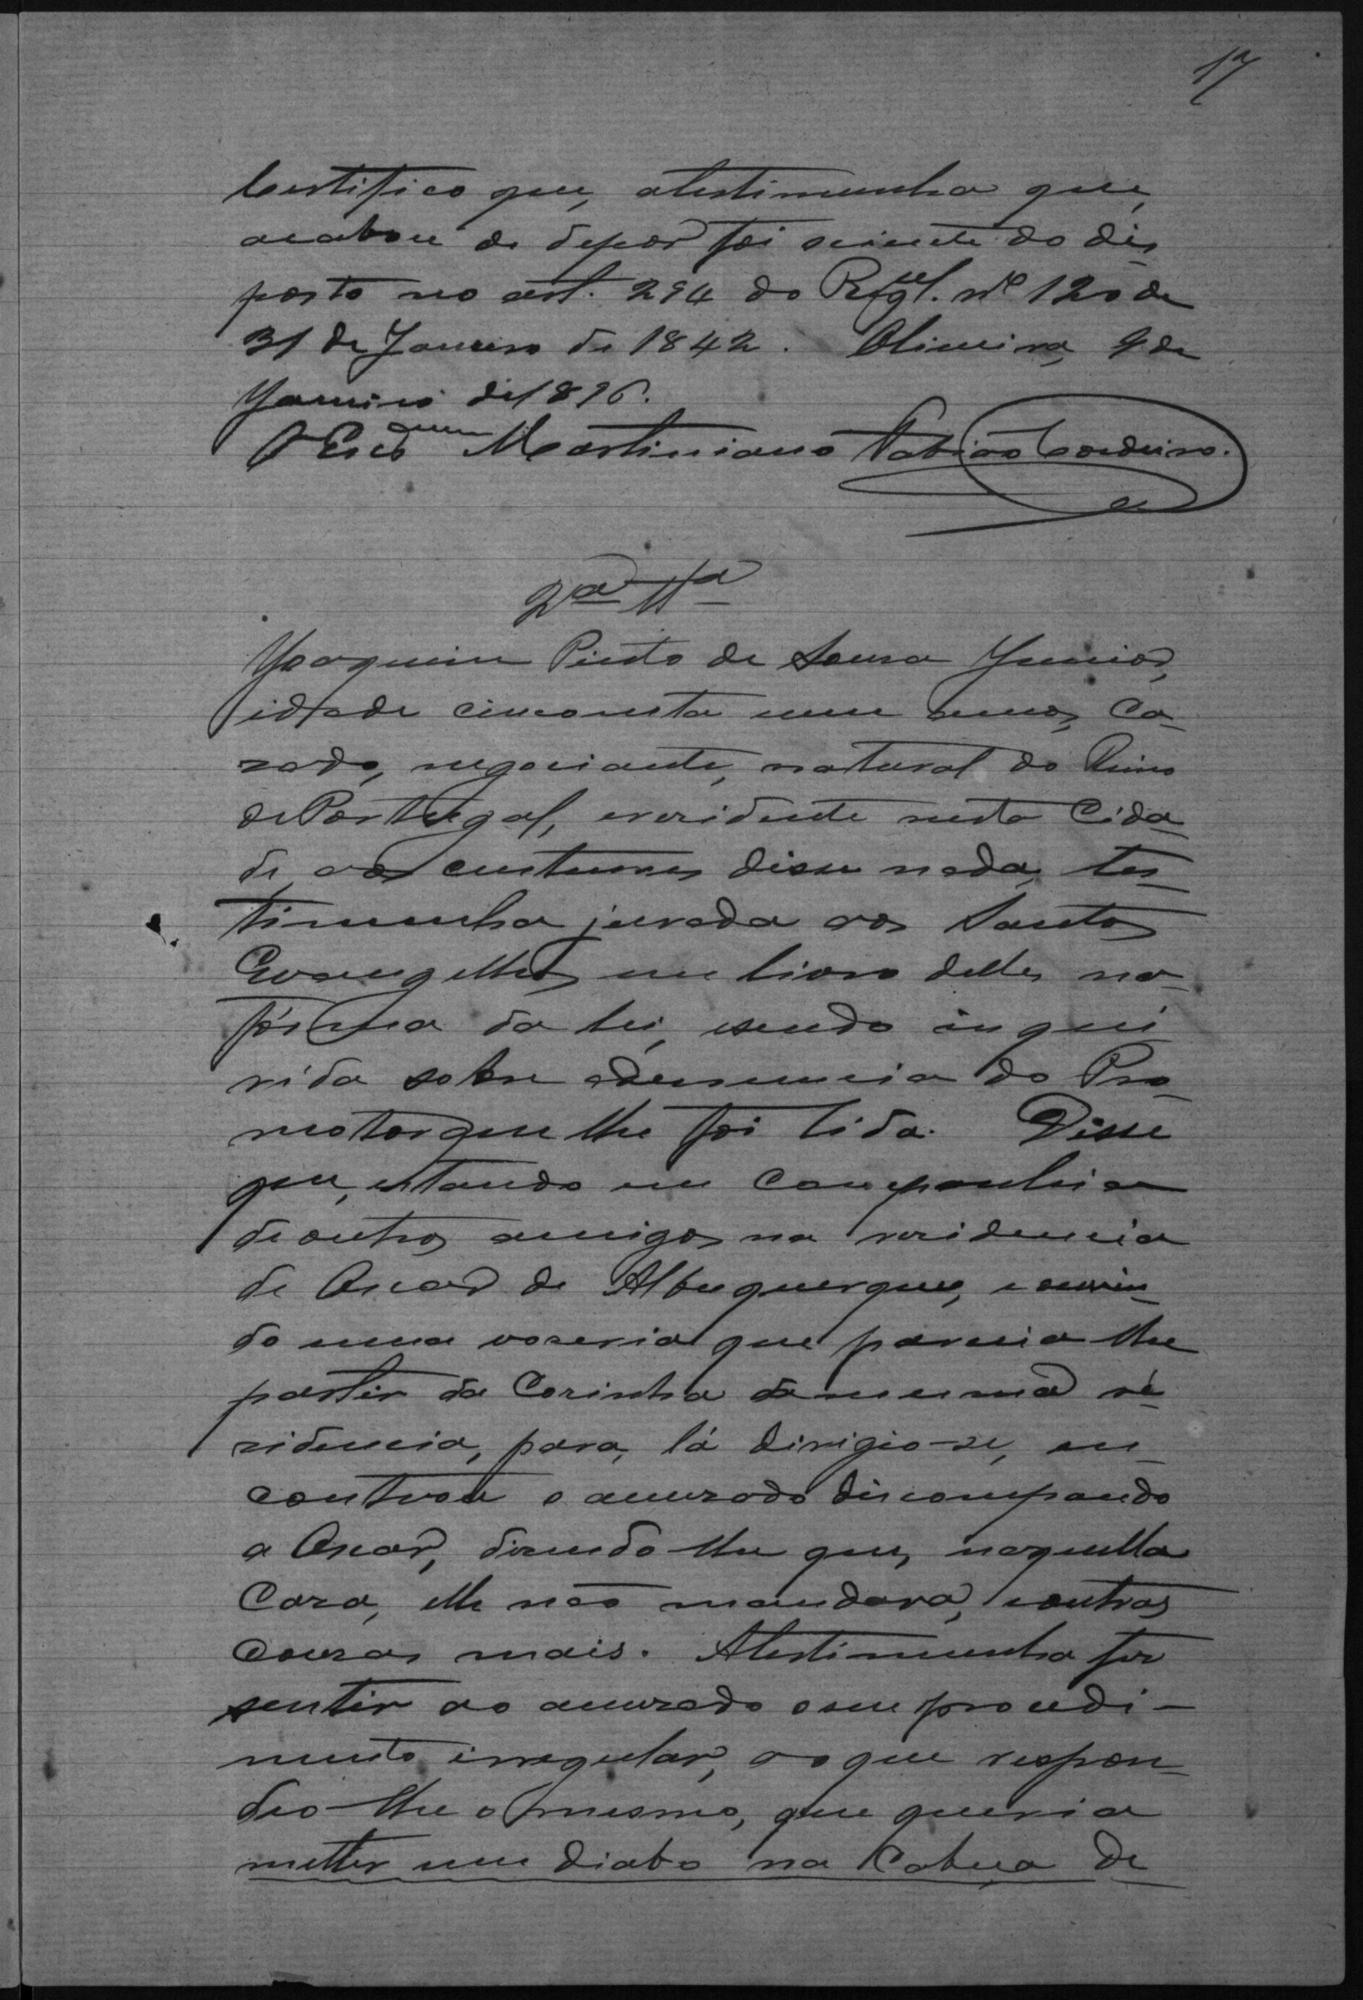 17
Certifico que, atestimunha que,
acabou de depor foi sciente do dis
posto no art. 294 do Regul. nº 120 de
31 de Janeiro de 1842. Oliveira, 9 de
Janeiro de 1896.
O Escam Martiniano Fabião Cordeiro.
2ª Ttª
Joaquim Pinto de Sousa Junior,
idade cincoenta um annos, ca-
zado, negociante, natural do Reino
de Portugal, erezidente nesta Cida-
de, aos custumes disse nada, tes-
timunha jurada aos Santos
Evangelhos em livro delles na
fórma da lei, esendo inqui
rida sobre adenuncia do Pro-
motor que lhe foi lida. Disse
que, estando em companhia
de outros amigos na rezidencia
de Oscar de Albuquerque, e ouvin-
do uma vozeria que parecia lhe
partir da Cozinha damesma re-
zidencia, para, lá dirigio-se, en-
controu o acuzado discompondo
a Oscar, dizendo lhe que, naquella
Caza, elle não mandava, e outras
couzas mais. Atestimunha fez
sentir ao acuzado oseu procedi-
mento irregular, ao que respon-
deo-lhe o mesmo, que queria
metter um diabo na Cabeça de